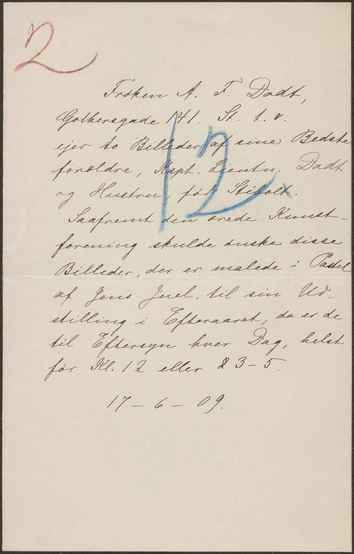 2
Frøken A. F Dodt,
Gothersgade 141. St. t. v.
ejer to Billeder af sine Bedste
forældre, Kapt. Dodt
og Hustru født Stibolt.
12
Saafremt den ærede Kunst-
forening skulde ønske disse
Billeder, der er malede i Pastel
af Jens Juel, til sin Ud-
stilling i Efteraaret, da er de
til Eftersyn hver Dag, helst
før Kl. 12 eller 3-5.
17-6-09.